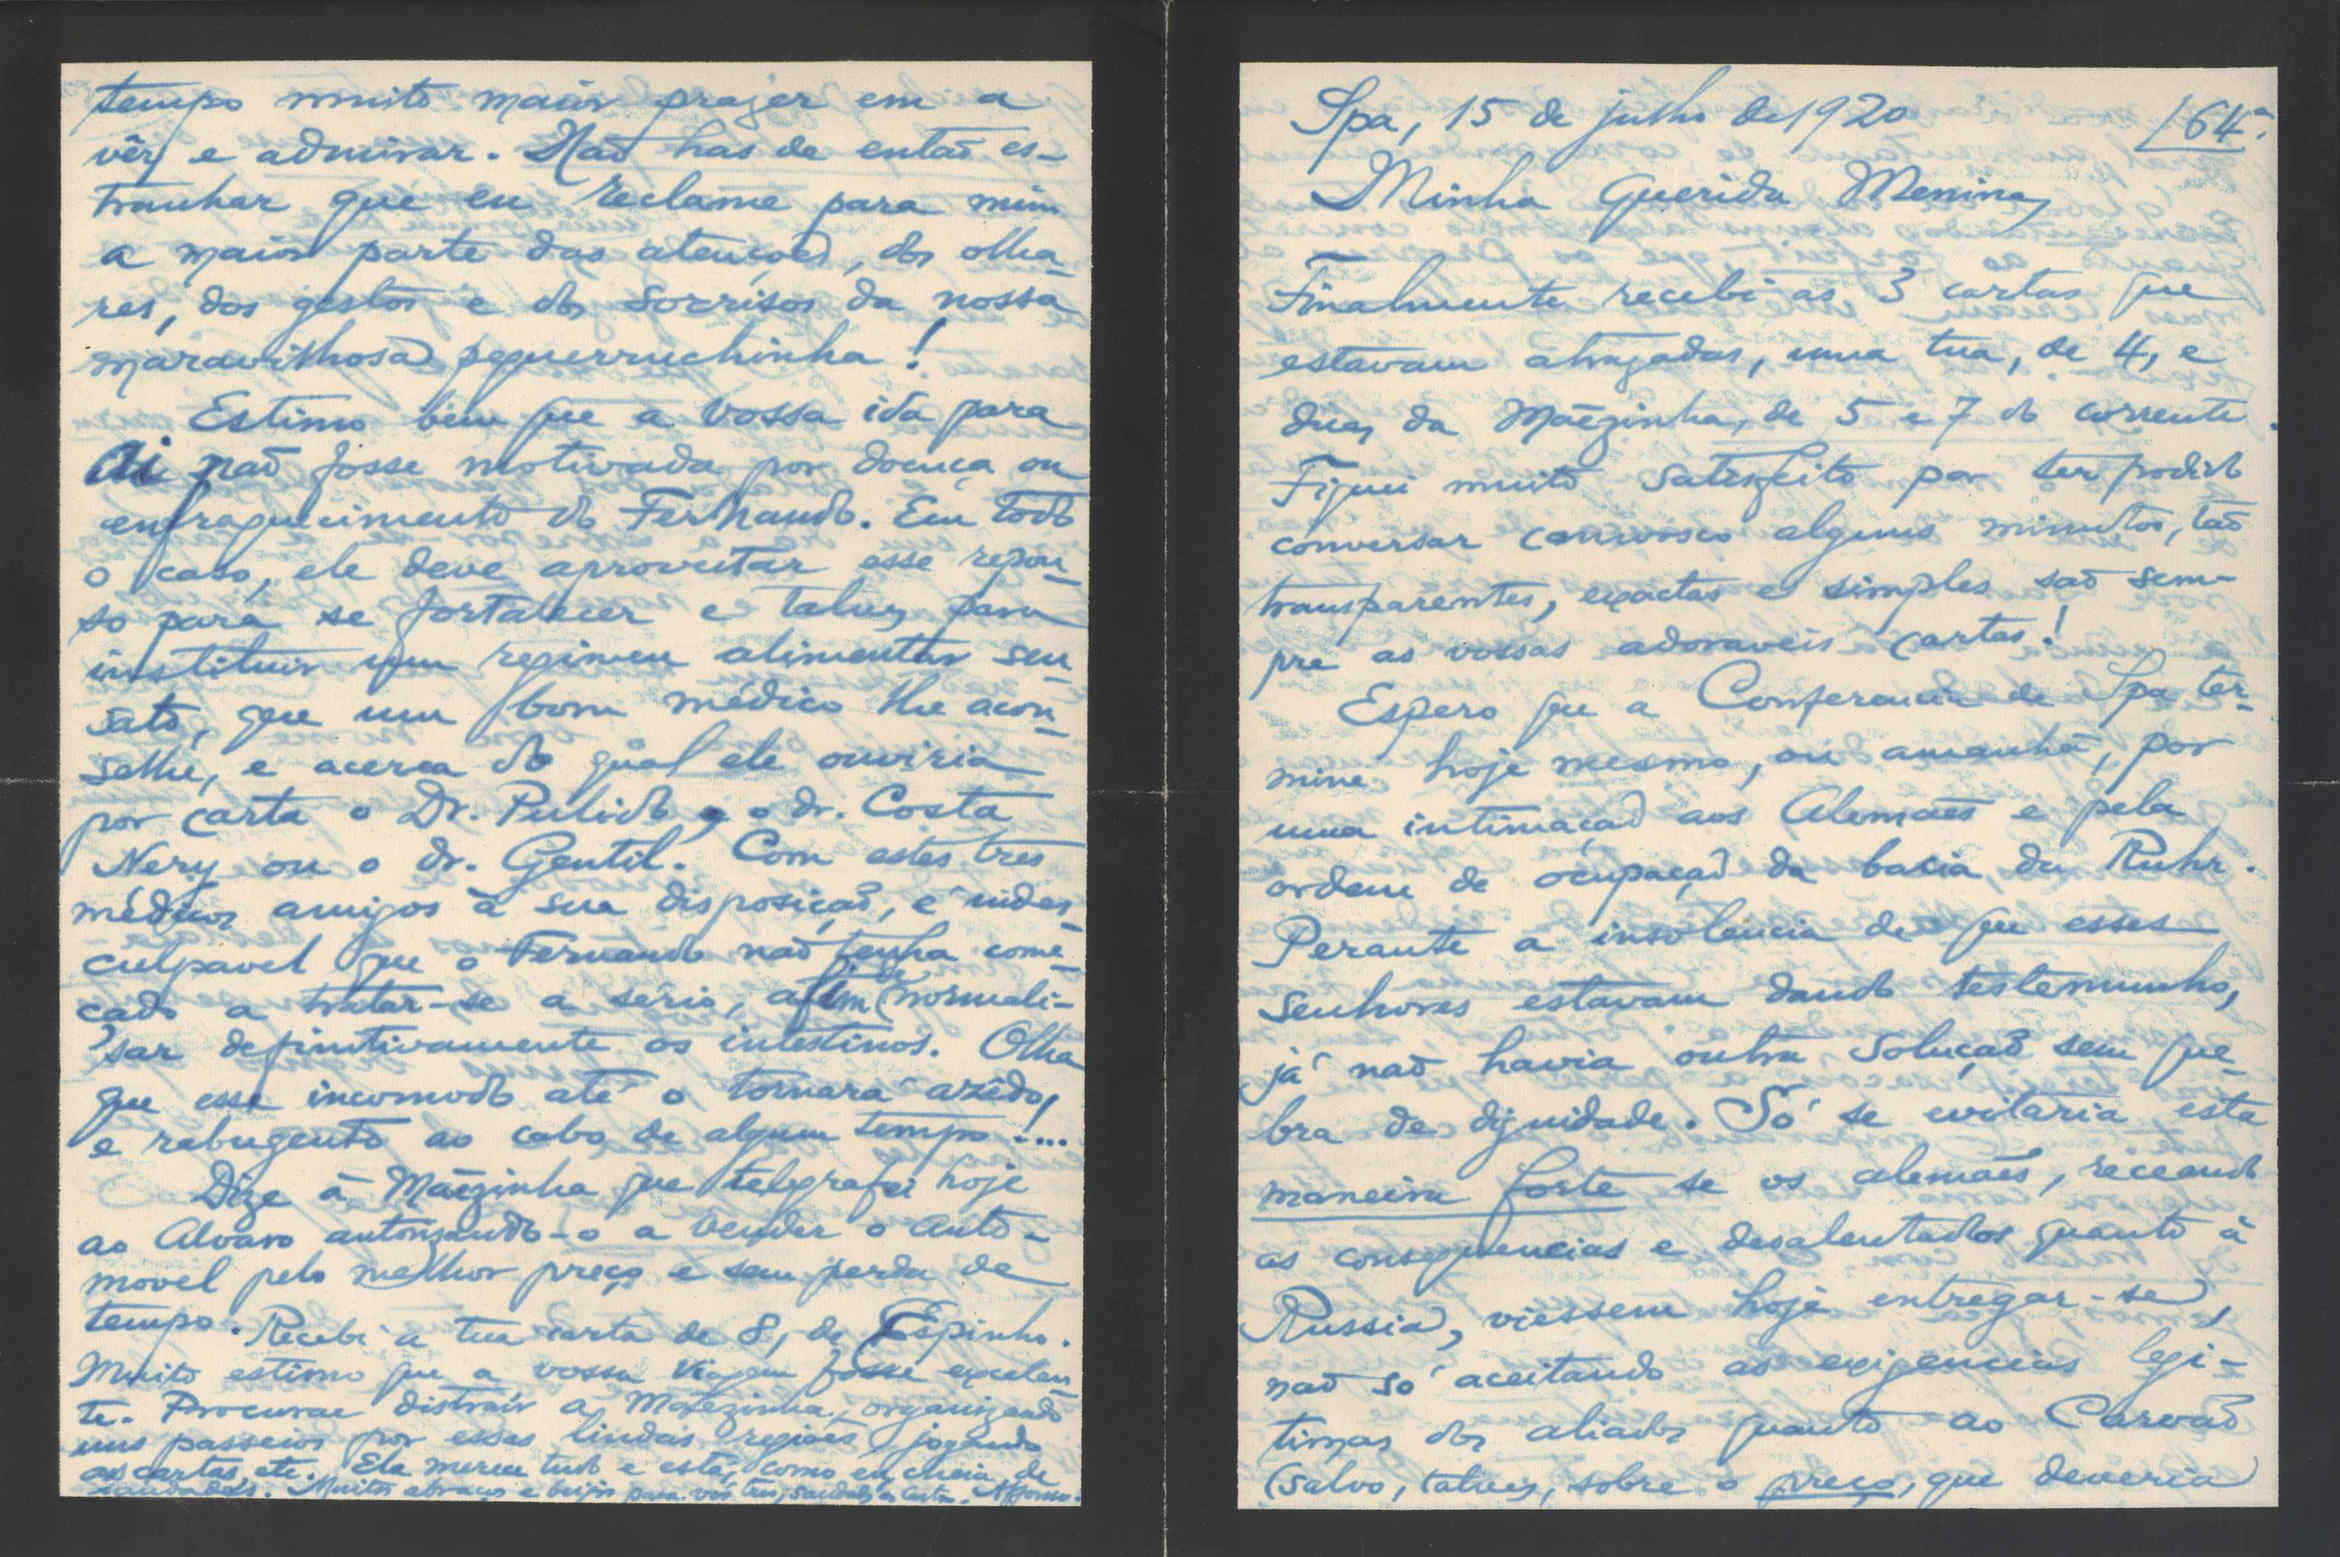 Spa, 15 de julho de 1920
164ª.
Minha Querida Menina,
Finalmente recebi as 3 cartas que
estavam atrazadas, uma tua, de 4, e
duas da Mãezinha, de 5 e 7 do corrente.
Fiquei muito satisfeito por ter podido
conversar comvosco alguns minutos, tão
transparentes, exactas e simples são sem-
pre as vossas adoraveis cartas!
Espero que a Conferencia de Spa ter-
mine hoje mesmo, ou amanhã, por
uma intimação aos Alemães e pela
ordem de ocupação da bacia du Ruhr.
Perante a insolencia de que esses
senhores estavam dando testemunho,
já não havia outra solução sem que-
bra de dignidade. Só se evitaria esta
maneira forte se os alemães, receando
as consequencias e desalentados quanto á
Russia, viessem hoje entregar-se,
não só aceitando as exigencias legi-
timas dos aliados quanto ao Carvão
(salvo, talvez, sobre o preço, que deveria
tempo muito maior prazer em a
vêr e admirar. Não has de então es-
tranhar que eu reclame para mim
a maior parte das atenções, dos olha-
res, dos gestos e dos sorrisos da nossa
maravilhosa pequerruchinha!
Estimo bem que a vossa ida para
Ai não fosse motivada por doença ou
enfraquecimento do Fernando. Em todo
o caso, ele deve aproveitar esse repou-
so para se fortalecer e talvez para
instituir um regimen alimentar sen-
sato, que um bom médico lhe acon-
selhe, e acerca do qual ele ouviria
por carta o Dr. Pulido, o dr. Costa
Nery ou o dr. Gentil. Com estes tres
médicos amigos á sua disposição, é indes-
culpavel que o Fernando não tenha come-
çado a tratar-se a sério, afim de normali-
sar definitivamente os intestinos. Olha
que esse incomodo até o tornará azêdo,
e rabugento ao cabo de algum tempo!...
Dize á Mãezinha que telegrafei hoje
ao Alvaro autorisando-o a vender o auto-
movel pelo melhor preço e sem perda de
tempo. Recebi a tua carta de 8, de Espinho.
Muito estimo que a vossa viagem fosse excelen-
te. Procurae distrair a Mãezinha, organizando
uns passeios por essas lindas regiões, jogando
as cartas, etc. Ela merece tudo e está, como eu, cheia de
saudades. Muitos abraços e beijos para vós tres, saudades Affonso.